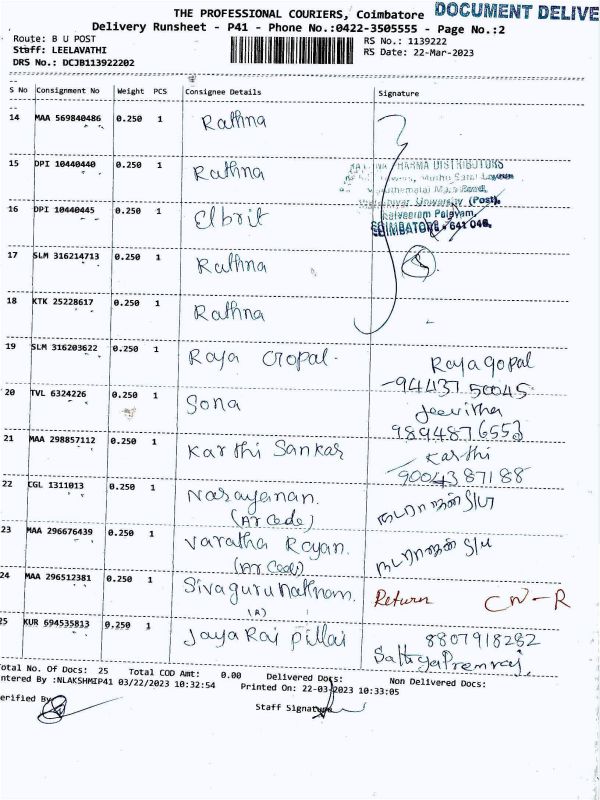 THE PROFESSIONAL COURIERS, Coimbatore DOCUMENT DELIVE
Delivery Runsheet - P41 - Phone No.:0422-3505555 - Page No.:2
Route: B U POST RS No.: 1139222
Staff: LEELAVATHI RS Date: 22-Mar-2023
DRS No.: DCJB113922202
S No Consignment No Weight PCS Consignee Details Signature
14 MAA 569840486 0.250 1 Rathna
15 DPI 10440440 0.250 1 Rathna
PHARMA DISTRIBUTORS
Layout
Road,
University (Post),
Palayam,
COIMBATORE - 641 046.
16 DPI 10440445 0.250 1 Elbrit
17 SLM 316214713 0.250 1 Rathna
18 KTK 25228617 0.250 1 Rathna
19 SLM 316203622 0.250 1 Raja Gopal. Rajagopal
94437 50045
20 TVL 6324226 0.250 1 Sona Jeevitha
9894876553
21 MAA 298857112 0.250 1 Karthi Sankar Karthi
9004387188
22 CGL 1311013 0.250 1 Narayanan. நடராஜன் S/W
(Ar Code)
23 MAA 296676439 0.250 1 Varatha Rajan. நடராஜன் S/W
(Ar Code)
24 MAA 296512381 0.250 1 Sivagurunathnam. Return CN-R
(A)
25 KUR 694535813 0.250 1 Jaya Raj Pillai 8807918282
SathyaPremraj.
Total No. Of Docs: 25 Total COD Amt: 0.00 Delivered Docs: Non Delivered Docs:
ntered By :NLAKSHMIP41 03/22/2023 10:32:54 Printed On: 22-03-2023 10:33:05
erified By Staff Signature